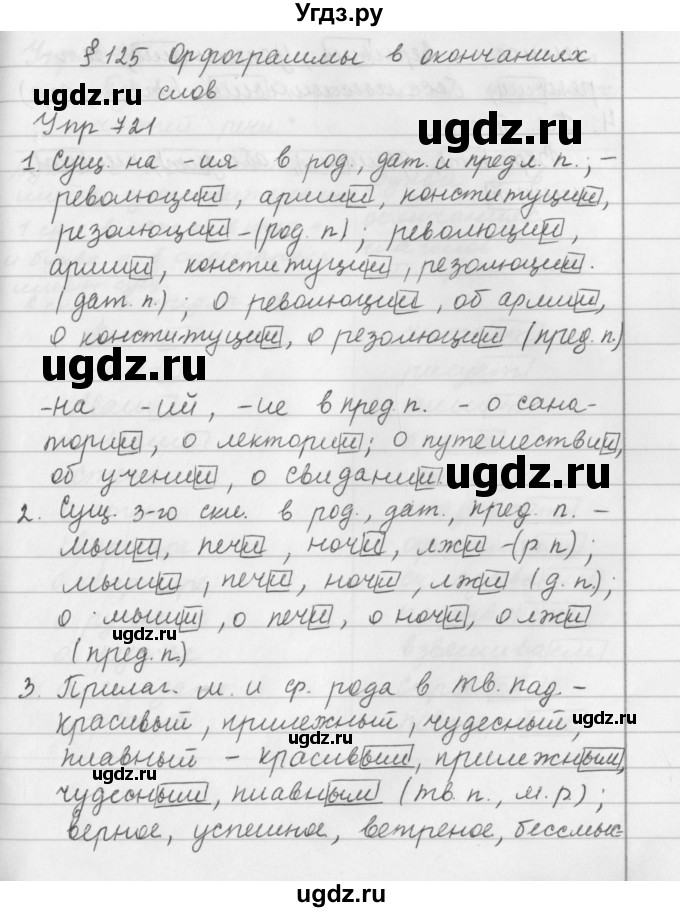 Угдз.ру
§ 125 Орфограммы в окончаниях
слов
Упр 721
1. Сущ. на -ия в род., дат. и предл. п.; -
революции, армии, конституции,
резолюции - (род. п.); революции,
армии, конституции, резолюции.
(дат. п.); о революции, об армии,
о конституции, о резолюции (пред. п.)
-на -ий, -ие в пред п. - о сана-
тории, о лектории; о путешествии,
об учении, о свидании.
2. Сущ. 3-го скл. в род., дат., пред. п. -
мыши, печи, ночи, лжи - (р. п);
мыши, печи, ночи, лжи (д. п.);
о мыши, о печи, о ночи, о лжи
(пред. п.)
3. Прилаг. м. и ср. рода в тв. пад. -
красивый, прилежный, чудесный,
плавный - красивым, прилежным,
чудесным, плавным (тв. п., м. р.);
верное, успешное, ветреное, бессмыс-
ugdz.ru
ugdz.ru
ugdz.ru
ugdz.ru
ugdz.ru
ugdz.ru
ugdz.ru
ugdz.ru
ugdz.ru